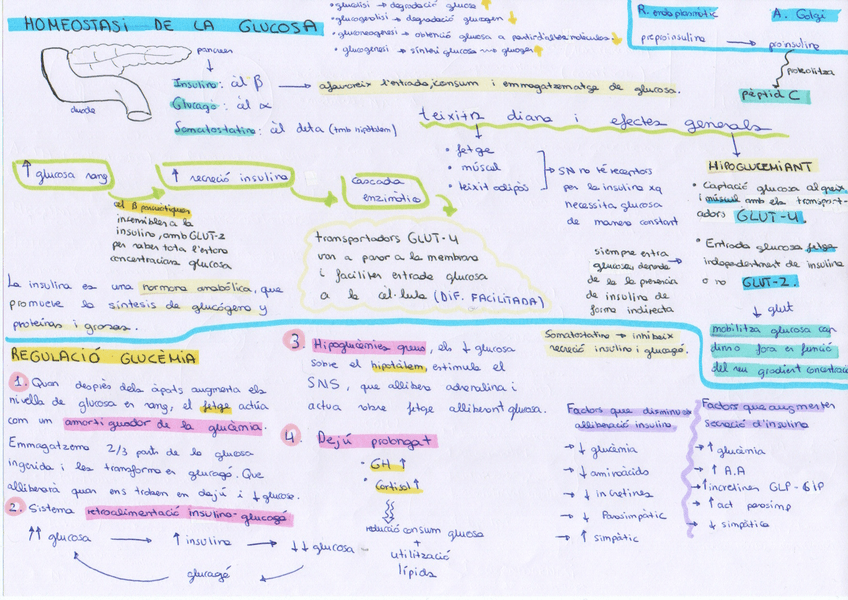 HOMEOSTASI DE LA GLUCOSA
• glucolisi → degradació glucosa
• glucogenolisi → degradació glucogen
• gluconeogenesi → obtenció glucosa a partir d'altres molècules.
• glucogenesi → síntesi glucosa → glucogen
R. endoplasmàtic
A. Golgi
preproinsulina → proinsulina
proteolitza
pèptid C
pancrees
duode
Insulina: cèl β → afavoreix l'entrada, consum i emmagatzematge de glucosa.
Glucagó: cèl α
Somatostatina: cèl delta (tmb hipotàlem)
teixits diana i efectes generals
• fetge
• múscul
• teixit adipós
SN no té receptors
per la insulina xq
necessita glucosa
de manera constant
HIPOGLUCEMIANT
• Captació glucosa al greix
i múscul amb els transport-
adors GLUT-4.
• Entrada glucosa fetge
independentment de insulina
o no GLUT-2.
siempre entra
glucosa depende
de la presencia
de insulina de
forma indirecta
↓ glut
mobilitza glucosa cap
dins o fora en funció
del seu gradient concentració
↑ glucosa sang
↑ secreció insulina
cascada
enzimàtica
cèl β pancreatiques
insensibles a la
insulina, amb GLUT-2
per saber tota l'estona
concentracions glucosa
transportadors GLUT-4
van a parar a la membrana
i faciliten entrada glucosa
a la cèl·lula (DIF. FACILITADA)
La insulina es una hormona anabòlica, que
promueve la síntesis de glucógeno y
proteinas i grasas.
REGULACIÓ GLUCÈMIA
1. Quan després dels àpats augmenta els
nivells de glucosa en sang, el fetge actúa
com un amortiguador de la glucèmia.
Emmagatzema 2/3 parts de la glucosa
ingerida i les transforma en glucagó. Que
alliberarà quan ens trobem en dejú i ↓ glucosa.
2. Sistema retroalimentació insulina-glucagó
↑↑ glucosa → ↑ insulina → ↓↓ glucosa
glucagó
3. Hipoglucèmies greus, els ↓ glucosa
sobre el hipotàlem, estimula el
SNS, que allibera adrenalina i
actua sobre fetge alliberant glucosa.
4. Dejú prolongat
• GH ↑
• Cortisol ↑
reducció consum glucosa
+
utilització
lípids
Somatostatina → inhibeix
secreció insulina i glucagó.
Factors que disminueix
alliberació insulina
→ ↓ glucèmia
→ ↓ aminoàcids
→ ↓ incretines
→ ↓ Parasimpàtic
→ ↑ simpàtic
Factors que augmenten
secreció d'insulina
→ ↑ glucèmia
→ ↑ A.A
→ ↑ incretines GLP-GIP
→ ↑ act parasimp
→ ↓ simpàtica